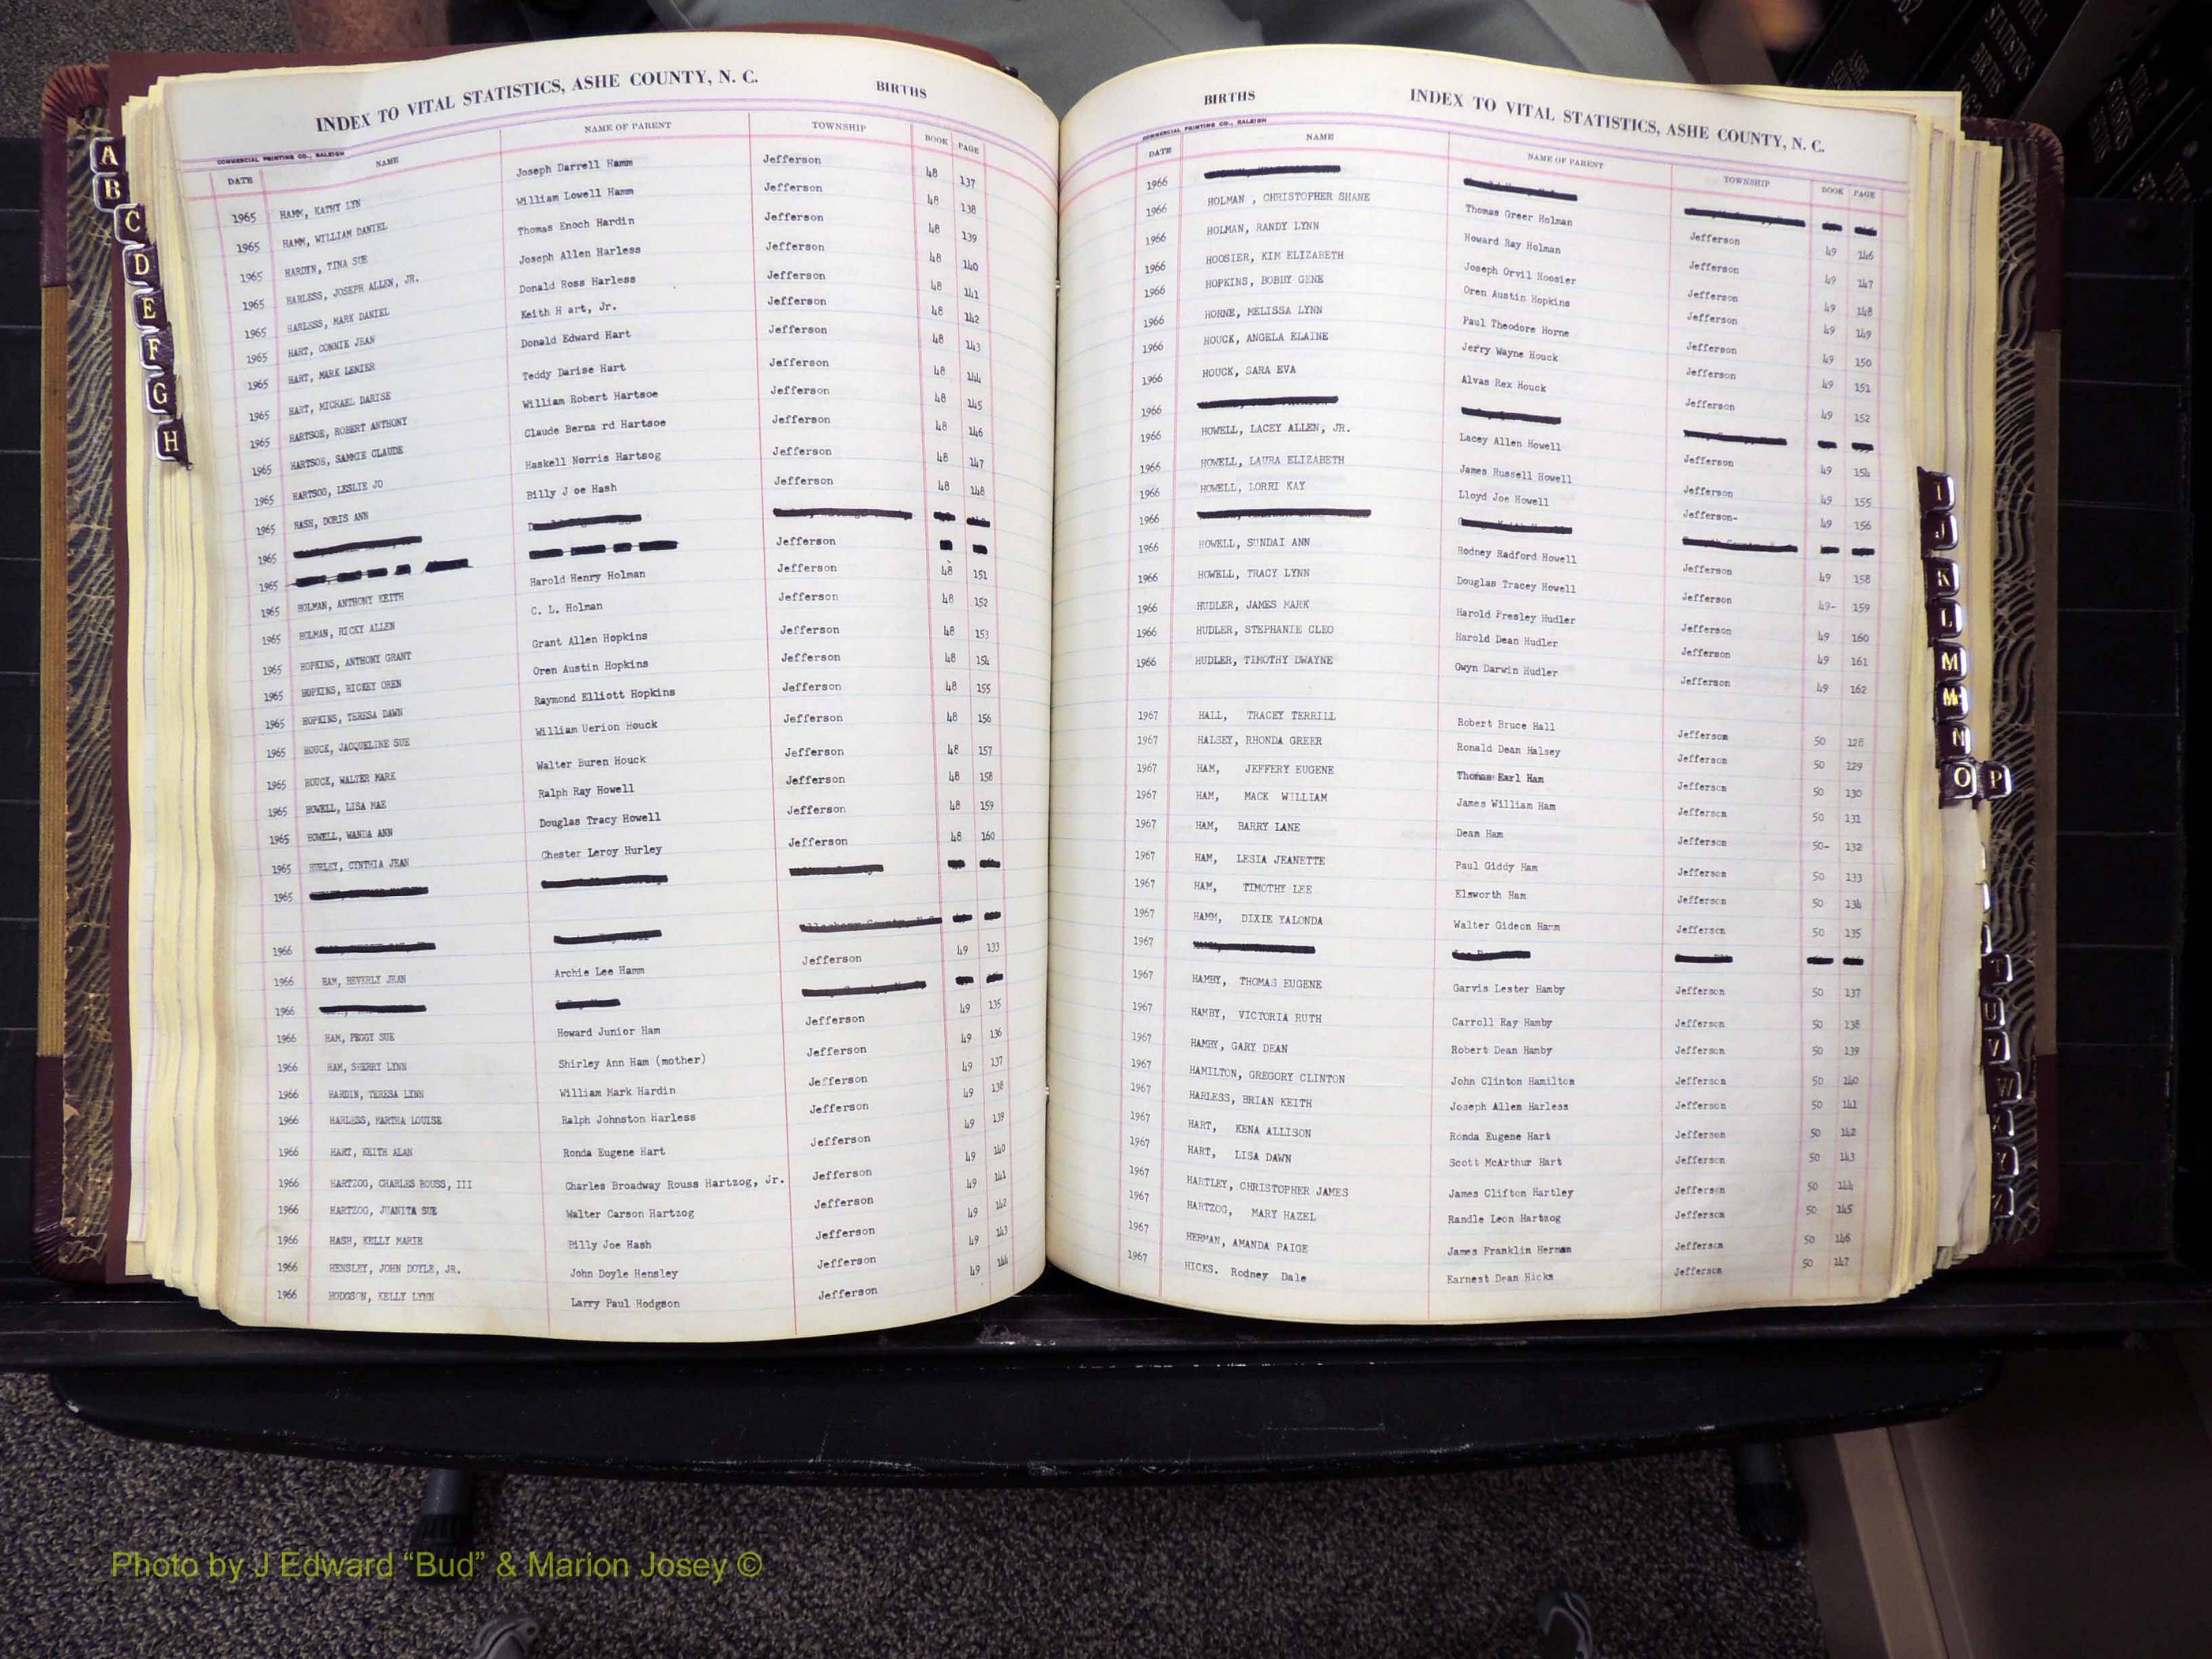 INDEX TO VITAL STATISTICS, ASHE COUNTY, N. C. BIRTHS
COMMERCIAL PRINTING CO., RALEIGH
DATE NAME NAME OF PARENT TOWNSHIP BOOK PAGE
1965 HAMM, KATHY LYN Joseph Darrell Hamm Jefferson 48 137
1965 HAMM, WILLIAM DANIEL William Lowell Hamm Jefferson 48 138
1965 HARDIN, TINA SUE Thomas Enoch Hardin Jefferson 48 139
1965 HARLESS, JOSEPH ALLEN, JR. Joseph Allen Harless Jefferson 48 140
1965 HARLESS, MARK DANIEL Donald Ross Harless Jefferson 48 141
1965 HART, CONNIE JEAN Keith H art, Jr. Jefferson 48 142
1965 HART, MARK LENIER Donald Edward Hart Jefferson 48 143
1965 HART, MICHAEL DARISE Teddy Darise Hart Jefferson 48 144
1965 HARTSOE, ROBERT ANTHONY William Robert Hartsoe Jefferson 48 145
1965 HARTSOE, SAMMIE CLAUDE Claude Berna rd Hartsoe Jefferson 48 146
1965 HARTSOG, LESLIE JO Haskell Norris Hartsog Jefferson 48 147
1965 HASH, DORIS ANN Billy J oe Hash Jefferson 48 148
1965
1965 Jefferson
1965 HOLMAN, ANTHONY KEITH Harold Henry Holman Jefferson 48 151
1965 HOLMAN, RICKY ALLEN C. L. Holman Jefferson 48 152
1965 HOPKINS, ANTHONY GRANT Grant Allen Hopkins Jefferson 48 153
1965 HOPKINS, RICKEY OREN Oren Austin Hopkins Jefferson 48 154
1965 HOPKINS, TERESA DAWN Raymond Elliott Hopkins Jefferson 48 155
1965 HOUCK, JACQUELINE SUE William Uerion Houck Jefferson 48 156
1965 HOUCK, WALTER MARK Walter Buren Houck Jefferson 48 157
1965 HOWELL, LISA MAE Ralph Ray Howell Jefferson 48 158
1965 HOWELL, WANDA ANN Douglas Tracy Howell Jefferson 48 159
1965 HURLEY, CYNTHIA JEAN Chester Leroy Hurley Jefferson 48 160
1965
1966
1966 HAM, BEVERLY JEAN Archie Lee Hamm Jefferson 49 133
1966
1966 HAM, PEGGY SUE Howard Junior Ham Jefferson 49 135
1966 HAM, SHERRY LYNN Shirley Ann Ham (mother) Jefferson 49 136
1966 HARDIN, TERESA LYNN William Mark Hardin Jefferson 49 137
1966 HARLESS, MARTHA LOUISE Ralph Johnston Harless Jefferson 49 138
1966 HART, KEITH ALAN Ronda Eugene Hart Jefferson 49 139
1966 HARTZOG, CHARLES ROUSS, III Charles Broadway Rouss Hartzog, Jr. Jefferson 49 140
1966 HARTZOG, JUANITA SUE Walter Carson Hartzog Jefferson 49 141
1966 HASH, KELLY MARIE Billy Joe Hash Jefferson 49 142
1966 HENSLEY, JOHN DOYLE, JR. John Doyle Hensley Jefferson 49 143
1966 HODGSON, KELLY LYNN Larry Paul Hodgson Jefferson 49 144
BIRTHS INDEX TO VITAL STATISTICS, ASHE COUNTY, N. C.
COMMERCIAL PRINTING CO., RALEIGH
DATE NAME NAME OF PARENT TOWNSHIP BOOK PAGE
1966
1966 HOLMAN , CHRISTOPHER SHANE Thomas Greer Holman Jefferson 49 146
1966 HOLMAN, RANDY LYNN Howard Ray Holman Jefferson 49 147
1966 HOOSIER, KIM ELIZABETH Joseph Orvil Hoosier Jefferson 49 148
1966 HOPKINS, BOBBY GENE Oren Austin Hopkins Jefferson 49 149
1966 HORNE, MELISSA LYNN Paul Theodore Horne Jefferson 49 150
1966 HOUCK, ANGELA ELAINE Jerry Wayne Houck Jefferson 49 151
1966 HOUCK, SARA EVA Alvas Rex Houck Jefferson 49 152
1966
1966 HOWELL, LACEY ALLEN, JR. Lacey Allen Howell Jefferson 49 154
1966 HOWELL, LAURA ELIZABETH James Russell Howell Jefferson 49 155
1966 HOWELL, LORRI KAY Lloyd Joe Howell Jefferson- 49 156
1966
1966 HOWELL, SUNDAI ANN Rodney Radford Howell Jefferson 49 158
1966 HOWELL, TRACY LYNN Douglas Tracey Howell Jefferson 49- 159
1966 HUDLER, JAMES MARK Harold Presley Hudler Jefferson 49 160
1966 HUDLER, STEPHANIE CLEO Harold Dean Hudler Jefferson 49 161
1966 HUDLER, TIMOTHY DWAYNE Gwyn Darwin Hudler Jefferson 49 162
1967 HALL, TRACEY TERRILL Robert Bruce Hall Jefferson 50 128
1967 HALSEY, RHONDA GREER Ronald Dean Halsey Jefferson 50 129
1967 HAM, JEFFERY EUGENE Thomas Earl Ham Jefferson 50 130
1967 HAM, MACK WILLIAM James William Ham Jefferson 50 131
1967 HAM, BARRY LANE Dean Ham Jefferson 50- 132
1967 HAM, LESIA JEANETTE Paul Giddy Ham Jefferson 50 133
1967 HAM, TIMOTHY LEE Elsworth Ham Jefferson 50 134
1967 HAMM, DIXIE YALONDA Walter Gideon Hamm Jefferson 50 135
1967
1967 HAMBY, THOMAS EUGENE Garvis Lester Hamby Jefferson 50 137
1967 HAMBY, VICTORIA RUTH Carroll Ray Hamby Jefferson 50 138
1967 HAMBY, GARY DEAN Robert Dean Hamby Jefferson 50 139
1967 HAMILTON, GREGORY CLINTON John Clinton Hamilton Jefferson 50 140
1967 HARLESS, BRIAN KEITH Joseph Allen Harless Jefferson 50 141
1967 HART, KENA ALLISON Ronda Eugene Hart Jefferson 50 142
1967 HART, LISA DAWN Scott McArthur Hart Jefferson 50 143
1967 HARTLEY, CHRISTOPHER JAMES James Clifton Hartley Jefferson 50 144
1967 HARTZOG, MARY HAZEL Randle Leon Hartzog Jefferson 50 145
1967 HERMAN, AMANDA PAIGE James Franklin Herman Jefferson 50 146
1967 HICKS. Rodney Dale Earnest Dean Hicks Jefferson 50 147
A
B
C
D
E
F
G
H
I
J
K
L
M
Mc
N
O P
T
U
V
W
X
Y
Z
VITAL STATISTICS BIRTHS
ASHE
Photo by J Edward “Bud” & Marion Josey ©